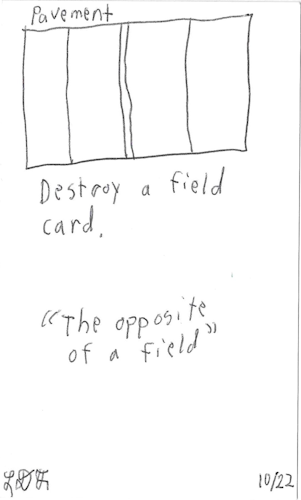 Pavement
Destroy a field
card.
"The opposite
of a field"
10/22